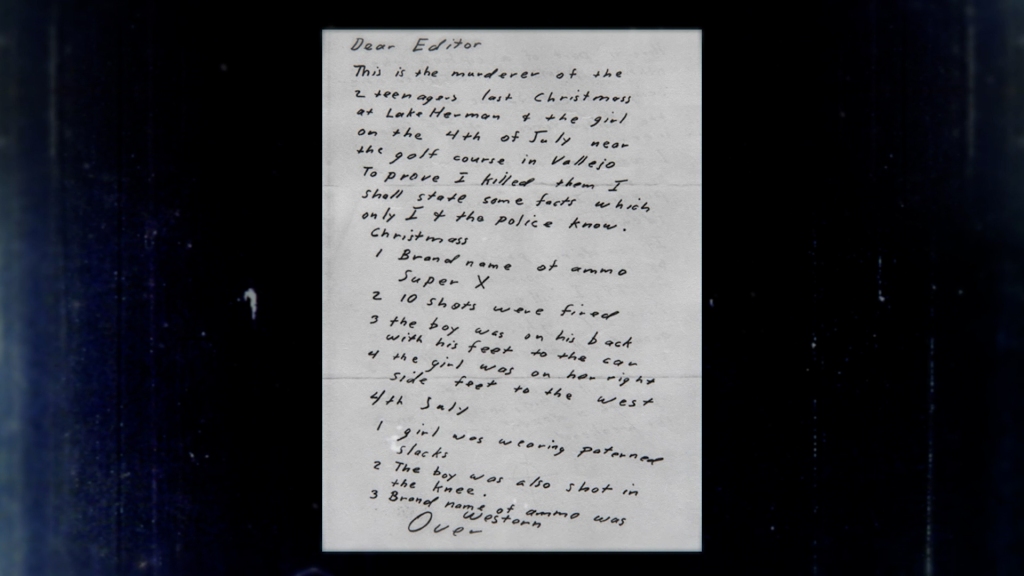 Dear Editor
This is the murderer of the
2 teenagers last Christmass
at Lake Herman & the girl
on the 4th of July near
the golf course in Vallejo
To prove I killed them I
shall state some facts which
only I & the police know.
Christmass
1 Brand name of ammo
Super X
2 10 shots were fired
3 the boy was on his back
with his feet to the car
4 the girl was on her right
side feet to the west
4th July
1 girl was wearing paterned
slacks
2 The boy was also shot in
the knee.
3 Brand name of ammo was
western
Over